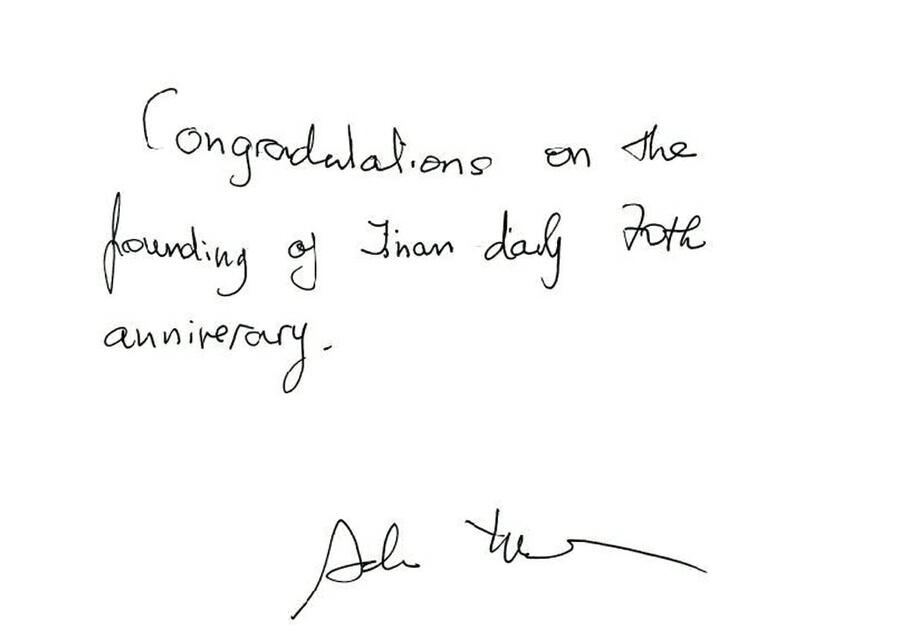 Congradulations on the
founding of Jinan daily 70th
anniverary.